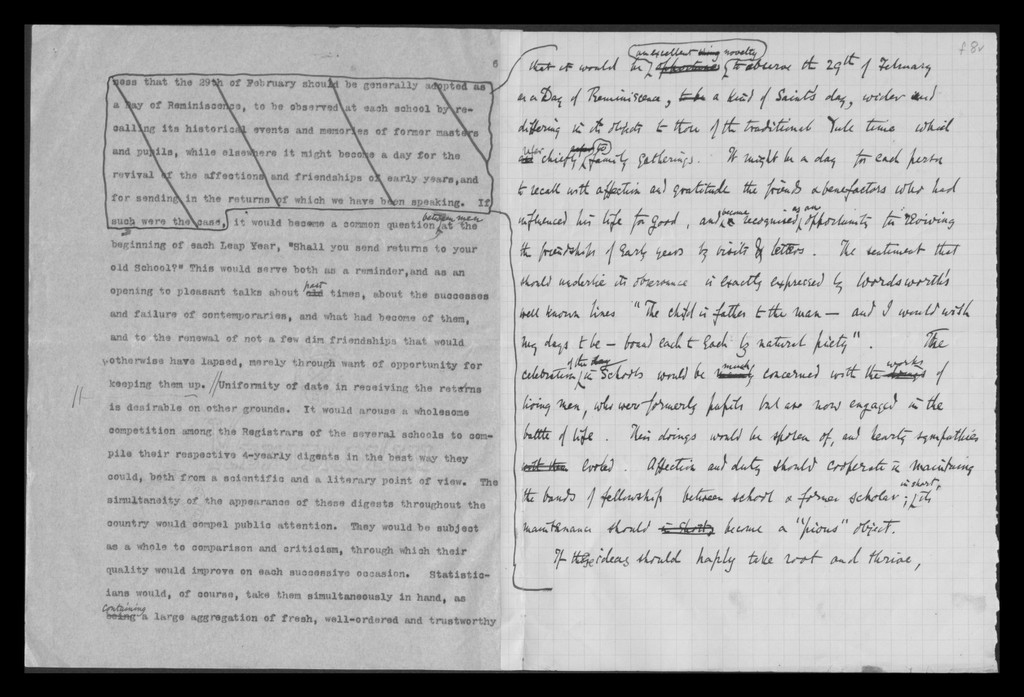 6
ness that the 29th of February should be generally adopted as
a Day of Reminiscence, to be observed at each school by re-
calling its historical events and memories of former masters
and pupils, while elsewhere it might become a day for the
revival of the affections and friendships of early years,and
for sending in the returns of which we have been speaking. If
such were the case, it would become a common question between men at the
beginning of each Leap Year, "Shall you send returns to your
old School?" This would serve both as a reminder,and as an
opening to pleasant talks about past old times, about the successes
and failure of contemporaries, and what had become of them,
and to the renewal of not a few dim friendships that would
otherwise have lapsed, merely through want of opportunity for
keeping them up. // Uniformity of date in receiving the returns
is desirable on other grounds. It would arouse a wholesome
competition among the Registrars of the several schools to com-
pile their respective 4-yearly digests in the best way they
could, both from a scientific and a literary point of view. The
simultaneity of the appearance of these digests throughout the
country would compel public attention. They would be subject
as a whole to comparison and criticism, through which their
quality would improve on each successive occasion. Statistic-
ians would, of course, take them simultaneously in hand, as
containing being a large aggregation of fresh, well-ordered and trustworthy
f 8v
an excellent thing novelty
that it would be to observe the 29th of February
as a Day of Reminiscence, to be a kind of Saint's day, wider and
differing in its objects to those of the traditional Yule time which
chiefly family gatherings. It might be a day for each person
to recall with affection and gratitude the friends & benefactors who had
influenced his life for good, and become recognised as an opportunity for reviving
the friendships of Early years by visits & letters. The sentiment that
should underlie its observance is exactly expressed by Wordsworth's
well known lines "The child is father to the man — and I would wish
my days to be — bound each to Each by natural piety". The
celebration of the day in Schools would be much concerned with the works of
living men, who were formerly pupils but are now engaged in the
battle of life. Their doings would be spoken of, and hearty sympathies
evoked. Affection and duty should cooperate in maintaining
the bands of fellowship between school & former scholar; in short, its
maintenance should in short become a "pious" object.
If these ideas should haply take root and thrive,